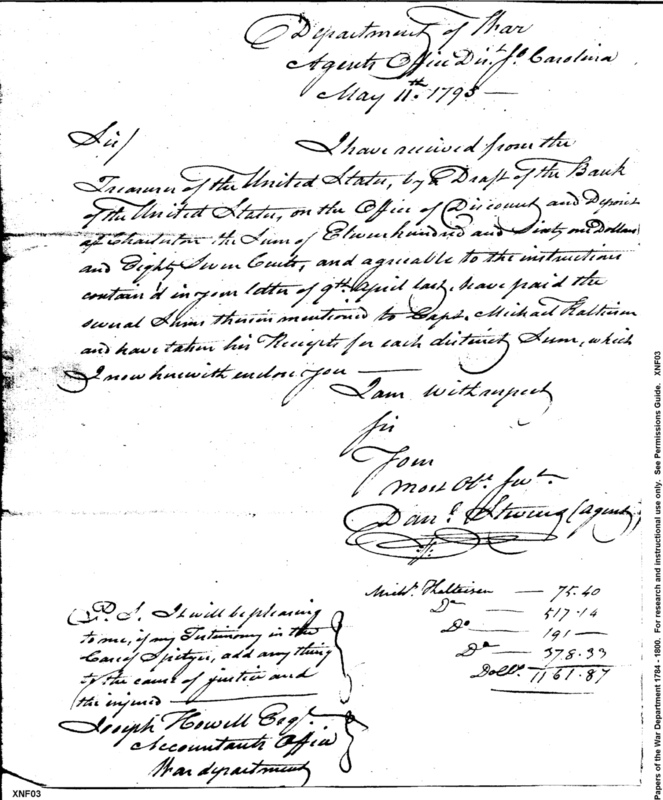 Department of War
Agents Office Dist. So. Carolina
May 11th. 1795 —
Sir/ I have received from the
Treasurer of the United States, by a Draft of the Bank
of the United States, on the Office of Discount and Deposit
at Charleston the Sum of Eleven hundred and Sixty one Dollars
and Eighty Seven Cents, and agreable to the instructions
contain'd in your letter of 9th April last, have paid the
several Sums therein mentioned to Capt. Michael Kalteisen
and have taken his Receipts for each distinct Sum, which
I now herewith enclose you —
I am with respect
Sir
Your
most Obt. Servt.
Danl. Stevens (Agent)
Michl. Kalteisen — 75.40
Do — 517.14
Do — 191 —
Do — 378.33
Dolls. 1161.87
P. S. It will be pleasing
to me, if my Testimony in the
Case of Spitzer, add any thing
to the cause of justice and
the injured —
Joseph Howell Esqr.
Accountants Office
War department
XNF03
Papers of the War Department 1784 - 1800. For research and instructional use only. See Permissions Guide. XNF03